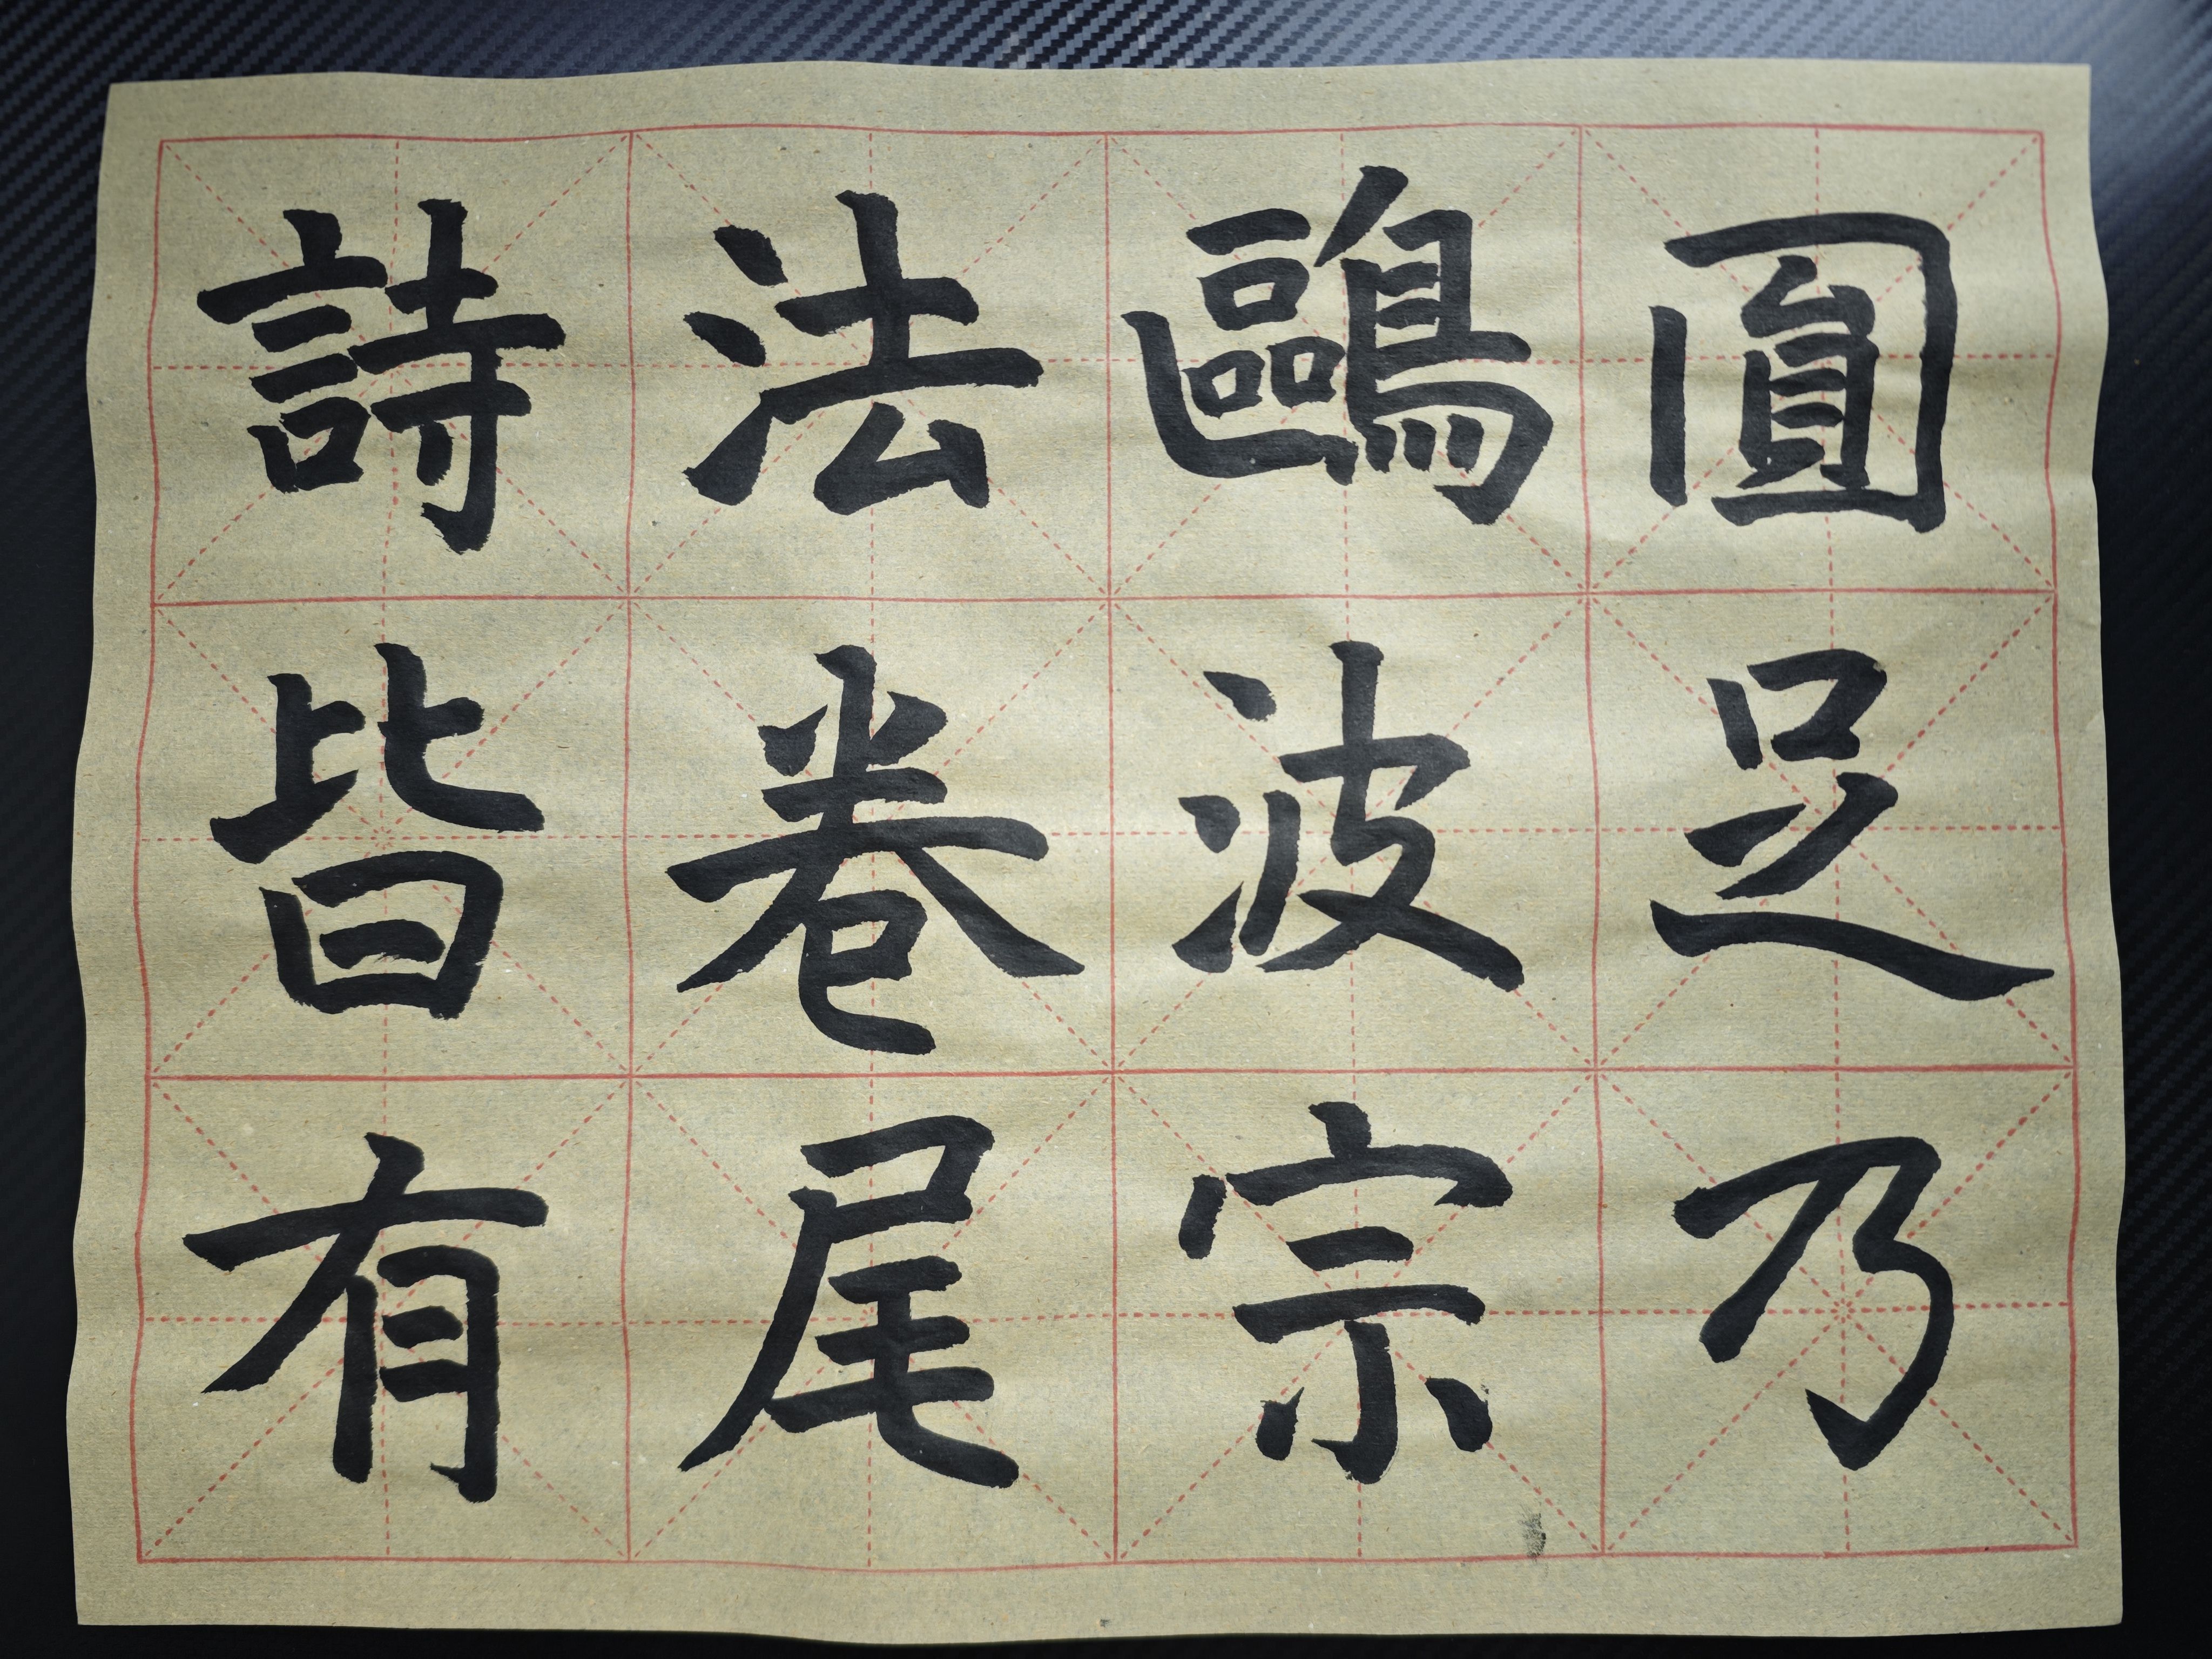 圓足乃
鷗波宗
法卷尾
詩皆有